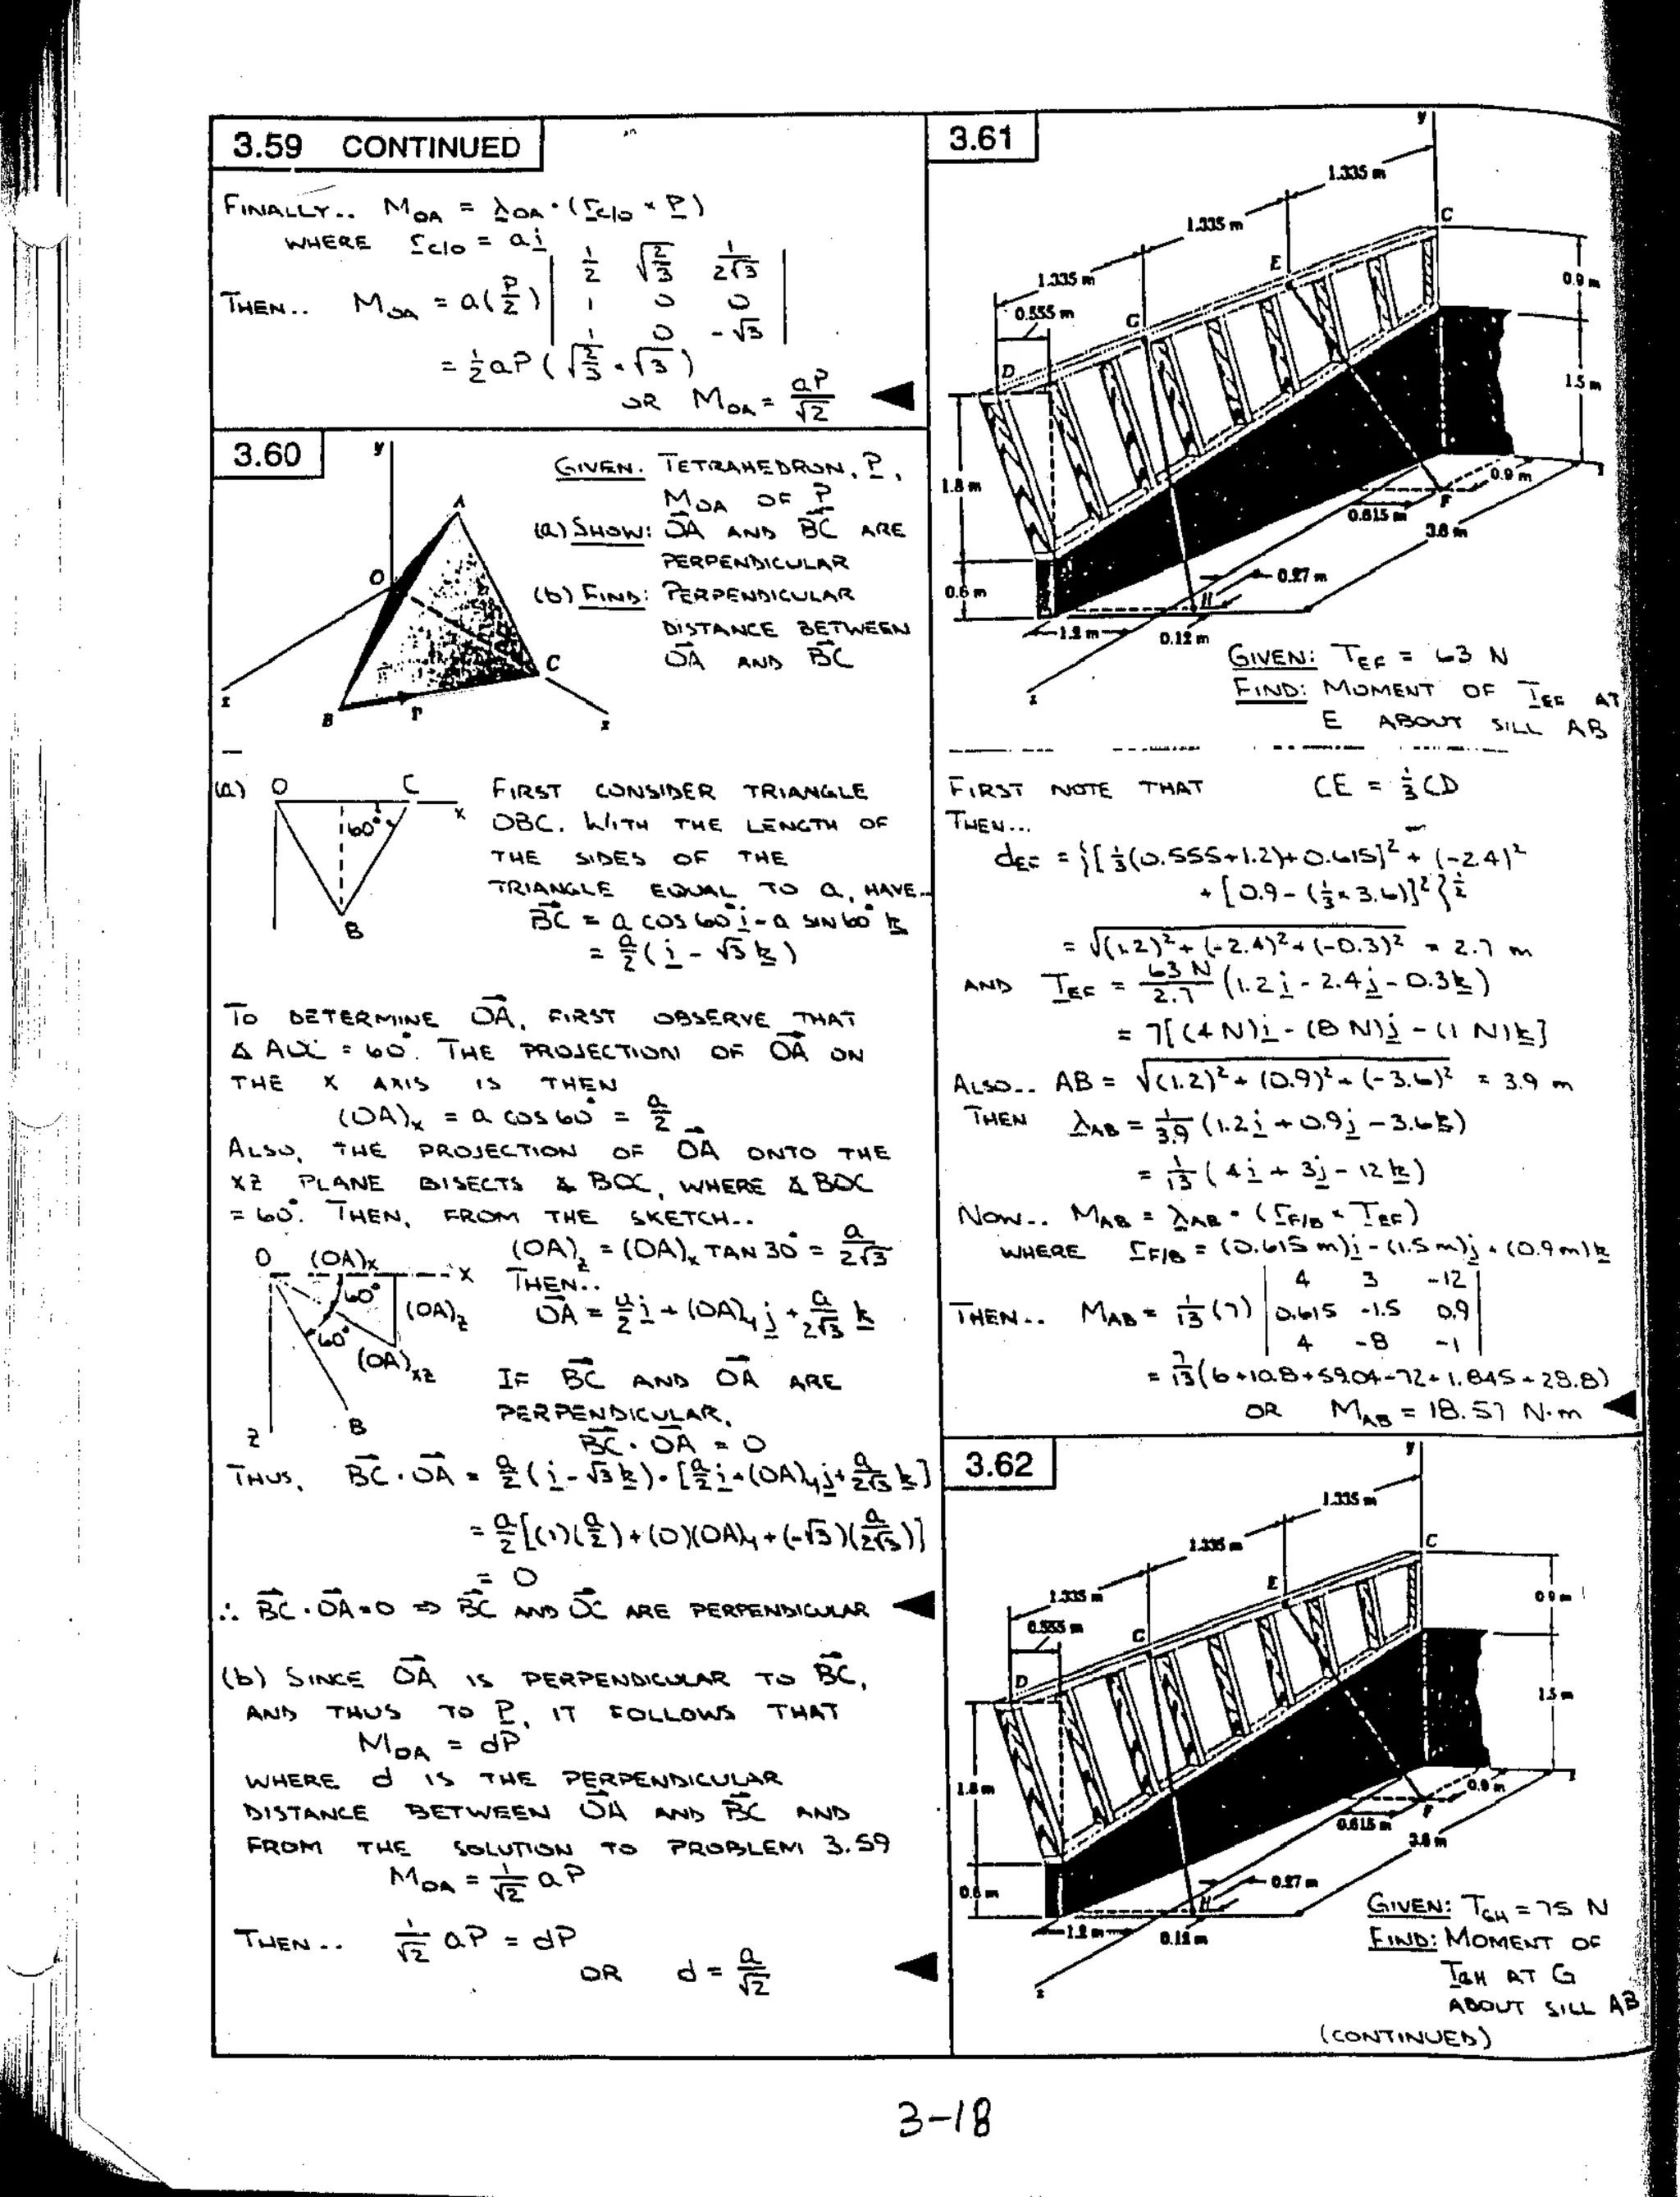 3.59 CONTINUED
FINALLY.. M_OA = λ_OA · (r_C/O × P)
WHERE r_C/O = a i
THEN.. M_OA = a(P/2) | 1/2 √(2/3) 1/(2√3) |
| 1 0 0 |
| 1 0 -√3 |
= 1/2 aP (√(2/3) · √3)
OR M_OA = aP/√2
3.60
y
A
O
C
B
P
z
x
GIVEN. TETRAHEDRON, P,
M_OA OF P
(a) SHOW: OA AND BC ARE
PERPENDICULAR
(b) FIND: PERPENDICULAR
DISTANCE BETWEEN
OA AND BC
(a) O C x
60°
B
FIRST CONSIDER TRIANGLE
OBC. WITH THE LENGTH OF
THE SIDES OF THE
TRIANGLE EQUAL TO a, HAVE..
BC = a COS 60° i - a SIN 60° k
= a/2 ( i - √3 k )
TO DETERMINE OA, FIRST OBSERVE THAT
∡ AOC = 60°. THE PROJECTION OF OA ON
THE X AXIS IS THEN
(OA)x = a COS 60° = a/2
ALSO, THE PROJECTION OF OA ONTO THE
XZ PLANE BISECTS ∡ BOC, WHERE ∡ BOC
= 60°. THEN, FROM THE SKETCH..
O (OA)x x
60°
60°
(OA)z
(OA)xz
z B
(OA)z = (OA)x TAN 30° = a/(2√3)
THEN..
OA = a/2 i + (OA)y j + a/(2√3) k
IF BC AND OA ARE
PERPENDICULAR,
BC · OA = 0
THUS, BC · OA = a/2 ( i - √3 k ) · [ a/2 i + (OA)y j + a/(2√3) k ]
= a/2 [(1)(a/2) + (0)(OA)y + (-√3)(a/(2√3))]
= 0
∴ BC · OA = 0 ⇒ BC AND OC ARE PERPENDICULAR
(b) SINCE OA IS PERPENDICULAR TO BC,
AND THUS TO P, IT FOLLOWS THAT
M_OA = dP
WHERE d IS THE PERPENDICULAR
DISTANCE BETWEEN OA AND BC AND
FROM THE SOLUTION TO PROBLEM 3.59
M_OA = 1/√2 aP
THEN.. 1/√2 aP = dP
OR d = a/√2
3.61
y
1.335 m
C
1.335 m
E
1.335 m
0.9 m
0.555 m
G
D
1.5 m
1.8 m
0.9 m
F
0.615 m
3.6 m
0.6 m
0.27 m
H
1.2 m
0.12 m
z
GIVEN: T_EF = 63 N
FIND: MOMENT OF T_EF AT
E ABOUT SILL AB
FIRST NOTE THAT CE = 1/3 CD
THEN...
d_EF = {[1/3(0.555+1.2)+0.615]² + (-2.4)²
+ [0.9 - (1/3 × 3.6)]²}^1/2
= √((1.2)² + (-2.4)² + (-0.3)²) = 2.7 m
AND T_EF = 63 N/2.7 (1.2 i - 2.4 j - 0.3 k)
= 7[(4 N) i - (8 N) j - (1 N) k]
ALSO.. AB = √((1.2)² + (0.9)² + (-3.6)²) = 3.9 m
THEN λ_AB = 1/3.9 (1.2 i + 0.9 j - 3.6 k)
= 1/13 ( 4 i + 3 j - 12 k )
NOW.. M_AB = λ_AB · (r_F/B × T_EF)
WHERE r_F/B = (0.615 m) i - (1.5 m) j + (0.9 m) k
THEN.. M_AB = 1/13 (7) | 4 3 -12 |
| 0.615 -1.5 0.9 |
| 4 -8 -1 |
= 7/13 (6 + 10.8 + 59.04 - 72 + 1.845 + 28.8)
OR M_AB = 18.57 N·m
3.62
y
1.335 m
C
1.335 m
E
1.335 m
0.9 m
0.555 m
G
D
1.5 m
1.8 m
0.9 m
F
0.615 m
3.6 m
0.6 m
0.27 m
H
1.2 m
0.12 m
z
GIVEN: T_GH = 75 N
FIND: MOMENT OF
T_GH AT G
ABOUT SILL AB
(CONTINUED)
3-18